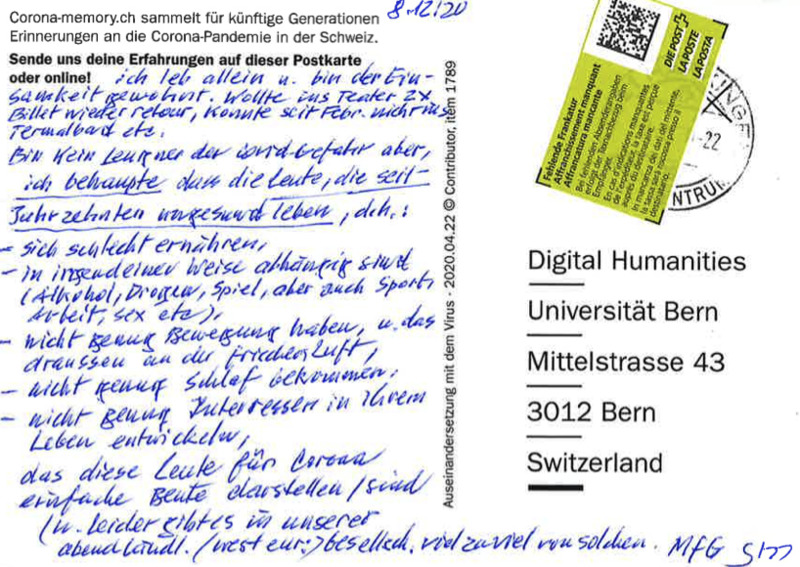 Corona-memory.ch sammelt für künftige Generationen
Erinnerungen an die Corona-Pandemie in der Schweiz.
8.12/20
Sende uns deine Erfahrungen auf dieser Postkarte
oder online!
ich leb allein u. bin der Ein-
samkeit gewohnt. Wollte ins Teater 2x
Billet wieder retour, konnte seit Febr. nicht ins
Termalbad etc.
Bin kein Leugner der Covid-Gefahr aber,
ich behaupte dass die Leute, die seit
Jahrzehnten ungesund leben, d.h.:
- sich schlecht ernähren,
- in irgendeiner Weise abhängig sind
(Alkohol, Drogen, Spiel, aber auch Sport,
Arbeit, Sex etc),
- nicht genug Bewegung haben, u. das
draussen an der frischen Luft,
- nicht genug Schlaf bekommen,
- nicht genug Interressen in ihrem
Leben entwickeln,
das diese Leute für Corona
einfache Beute darstellen / sind
(u. leider gibt es in unserer
abendländl. (west eur.) Gesellsch. viel zu viel von solchen. MfG
Auseinandersetzung mit dem Virus - 2020.04.22 © Contributor, item 1789
DIE POST
LA POSTE
LA POSTA
Fehlende Frankatur
Affranchissement manquant
Affrancatura mancante
Bei fehlenden Absenderangaben
erfolgt der Taxnachbezug beim
Empfänger.
En cas d'indications manquantes
de l'expéditeur, la taxe est perçue
auprès du destinataire.
In mancanza dei dati del mittente,
la tassa sarà riscossa presso il
destinatario.
Digital Humanities
Universität Bern
Mittelstrasse 43
3012 Bern
Switzerland